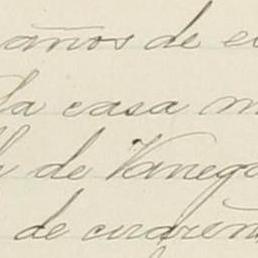 años de e
la casa n
de Vaneg
de cuaren